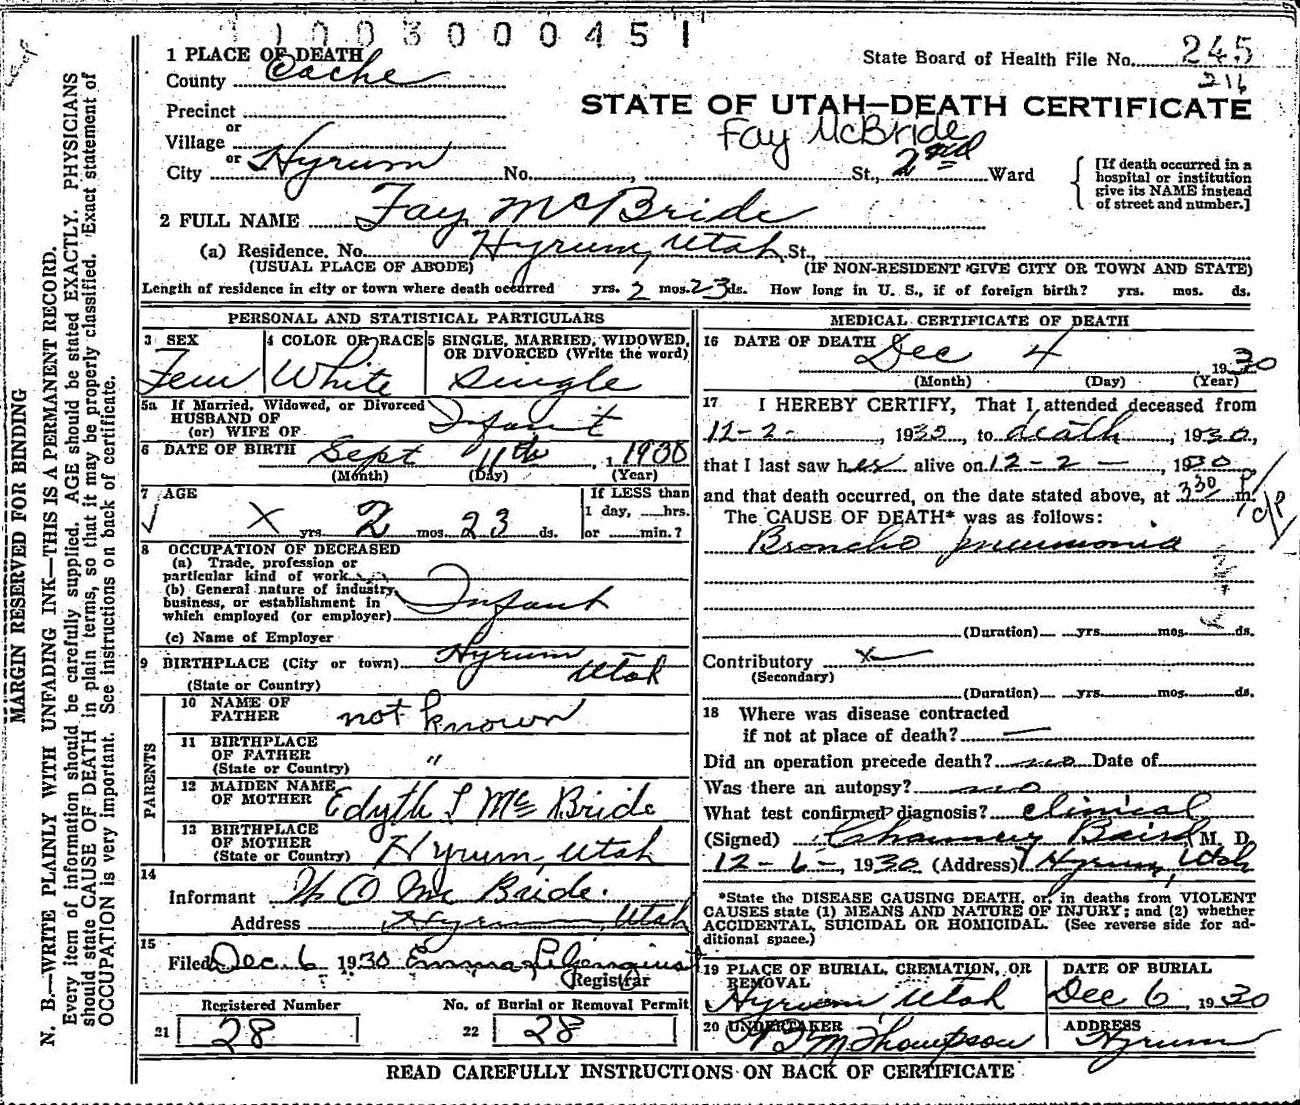 1003000451
1 PLACE OF DEATH
County Cache
State Board of Health File No. 245
216
Precinct
STATE OF UTAH—DEATH CERTIFICATE
Fay McBride
or
Village
or
City Hyrum No. , St., 2nd Ward
[If death occurred in a
hospital or institution
give its NAME instead
of street and number.]
2 FULL NAME Fay McBride
(a) Residence. No. Hyrum, Utah St.,
(USUAL PLACE OF ABODE) (IF NON-RESIDENT GIVE CITY OR TOWN AND STATE)
Length of residence in city or town where death occurred yrs. 2 mos. 23 ds. How long in U. S., if of foreign birth? yrs. mos. ds.
PERSONAL AND STATISTICAL PARTICULARS
3 SEX 4 COLOR OR RACE 5 SINGLE, MARRIED, WIDOWED,
OR DIVORCED (Write the word)
Fem White Single
5a If Married, Widowed, or Divorced
HUSBAND OF
(or) WIFE OF Infant
6 DATE OF BIRTH Sept 11th, 1930
(Month) (Day) (Year)
7 AGE If LESS than
1 day, hrs.
X yrs. 2 mos. 23 ds. or min.?
8 OCCUPATION OF DECEASED
(a) Trade, profession or
particular kind of work
(b) General nature of industry,
business, or establishment in
which employed (or employer) Infant
(c) Name of Employer
9 BIRTHPLACE (City or town) Hyrum
(State or Country) Utah
PARENTS
10 NAME OF
FATHER not known
11 BIRTHPLACE
OF FATHER "
(State or Country)
12 MAIDEN NAME
OF MOTHER Edyth L McBride
13 BIRTHPLACE
OF MOTHER
(State or Country) Hyrum, Utah
14
Informant W O McBride.
Address Hyrum, Utah
15
Filed Dec 6 1930 Emma
Registrar
Registered Number No. of Burial or Removal Permit
21 28 22 28
MEDICAL CERTIFICATE OF DEATH
16 DATE OF DEATH Dec 4, 1930
(Month) (Day) (Year)
17 I HEREBY CERTIFY, That I attended deceased from
12-2-, 1930, to death, 1930,
that I last saw her alive on 12-2-, 1930,
and that death occurred, on the date stated above, at 330 P m.
The CAUSE OF DEATH* was as follows:
Broncho pneumonia
(Duration) yrs. mos. ds.
Contributory X
(Secondary)
(Duration) yrs. mos. ds.
18 Where was disease contracted
if not at place of death? —
Did an operation precede death? no Date of
Was there an autopsy? no
What test confirmed diagnosis? clinical
(Signed) Chauncey Baird M. D.
12-6-, 1930 (Address) Hyrum, Utah
*State the DISEASE CAUSING DEATH, or, in deaths from VIOLENT
CAUSES state (1) MEANS AND NATURE OF INJURY; and (2) whether
ACCIDENTAL, SUICIDAL OR HOMICIDAL. (See reverse side for ad-
ditional space.)
19 PLACE OF BURIAL, CREMATION, OR
REMOVAL
Hyrum Utah
DATE OF BURIAL
Dec 6, 1930
20 UNDERTAKER
Thompson
ADDRESS
Hyrum
READ CAREFULLY INSTRUCTIONS ON BACK OF CERTIFICATE
MARGIN RESERVED FOR BINDING
N. B.—WRITE PLAINLY WITH UNFADING INK—THIS IS A PERMANENT RECORD.
Every item of information should be carefully supplied. AGE should be stated EXACTLY. PHYSICIANS
should state CAUSE OF DEATH in plain terms, so that it may be properly classified. Exact statement of
OCCUPATION is very important. See instructions on back of certificate.